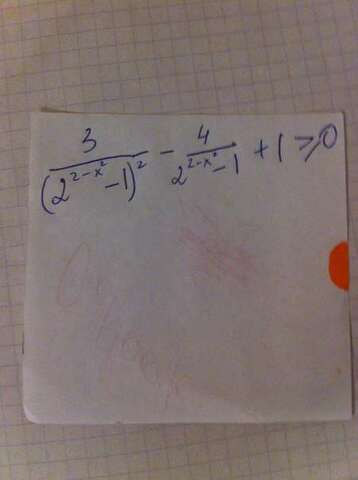 \frac{3}{(2^{2-x^2}-1)^2} - \frac{4}{2^{2-x^2}-1} + 1 \geqslant 0